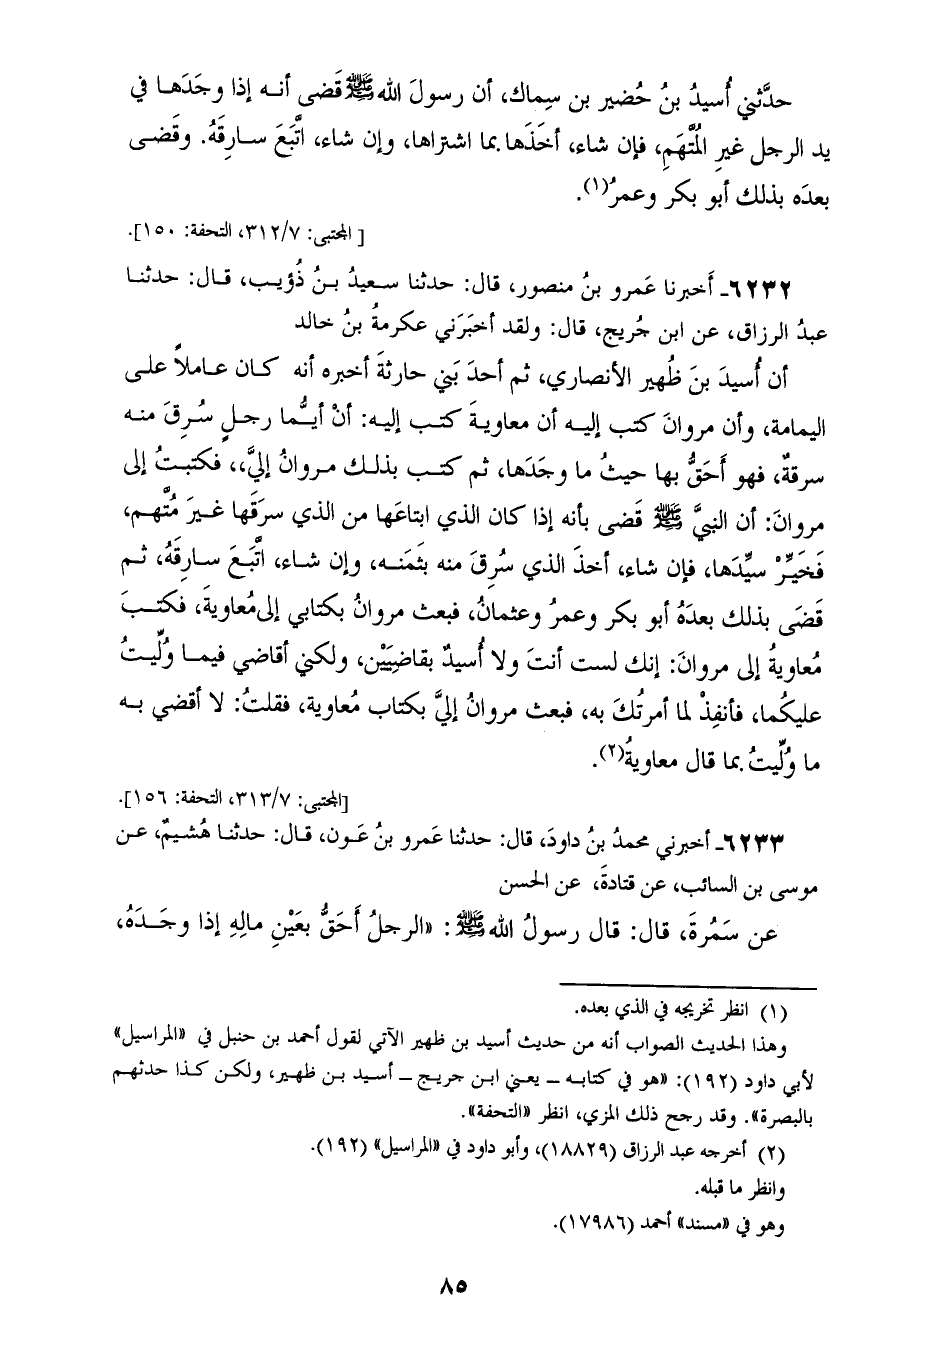 حدَّثني أُسيدُ بنُ حُضير بن سِماك، أن رسولَ الله ﷺ قَضى أنه إذا وجَدَها في
يد الرجل غيرِ المُتَّهَمِ، فإن شاء، أخَذَها بما اشتراها، وإن شاء، اتَّبَعَ سارِقَهُ. وقَضى
بعدَه بذلك أبو بكر وعمرُ(١).
[ المجتبى: ٣١٢/٧، التحفة: ١٥٠].
٦٢٣٢ـ أَخبرنا عَمرو بنُ منصور، قال: حدثنا سعيدُ بنُ ذُؤيب، قال: حدثنا
عبدُ الرزاق، عن ابن جُريج، قال: ولقد أخبَرَني عكرمةُ بنُ خالد
أن أُسيدَ بنَ ظُهير الأنصاري، ثم أحدَ بَني حارثةَ أخبره أنه كان عاملاً على
اليمامة، وأن مروانَ كتب إليه أن معاويةَ كتب إليه: أنْ أيُّما رجلٍ سُرِقَ منه
سرقةٌ، فهو أَحَقُّ بها حيثُ ما وجَدَها، ثم كتب بذلك مروانُ إليَّ،، فكتبتُ إلى
مروانَ: أن النبيَّ ﷺ قَضى بأنه إذا كان الذي ابتاعَها من الذي سرَقَها غيرَ مُتَّهم،
فَخَيِّرْ سيِّدَها، فإن شاء، أخذَ الذي سُرِقَ منه بثَمَنه، وإن شاء، اتَّبَعَ سارِقَهُ، ثم
قَضَى بذلك بعدَهُ أبو بكر وعمرُ وعثمانُ، فبعث مروانُ بكتابي إلى مُعاويةَ، فكتبَ
مُعاويةُ إلى مروانَ: إنك لست أنتَ ولا أُسيدٌ بقاضِيَيْن، ولكني أقاضي فيما وُلِّيتُ
عليكُما، فأنفِذْ لما أمرتُكَ به، فبعث مروانُ إليَّ بكتاب مُعاوية، فقلتُ: لا أقضي به
ما وُلِّيتُ بما قال معاويةُ(٢).
[المجتبى: ٣١٣/٧، التحفة: ١٥٦].
٦٢٣٣ـ أخبرني محمدُ بنُ داودَ، قال: حدثنا عَمرو بنُ عَون، قال: حدثنا هُشيمٌ، عن
موسى بن السائب، عن قتادةَ، عن الحسن
عن سَمُرةَ، قال: قال رسولُ الله ﷺ: «الرجلُ أَحَقُّ بعَيْنِ مالِهِ إذا وجَدَهُ،
(١) انظر تخريجه في الذي بعده.
وهذا الحديث الصواب أنه من حديث أسيد بن ظهير الآتي لقول أحمد بن حنبل في «المراسيل»
لأبي داود (١٩٢): «هو في كتابه – يعني ابن جريج – أسيد بن ظهير، ولكن كذا حدثهم
بالبصرة». وقد رجح ذلك المزي، انظر «التحفة».
(٢) أخرجه عبد الرزاق (١٨٨٢٩)، وأبو داود في «المراسيل» (١٩٢).
وانظر ما قبله.
وهو في «مسند» أحمد (١٧٩٨٦).
٨٥